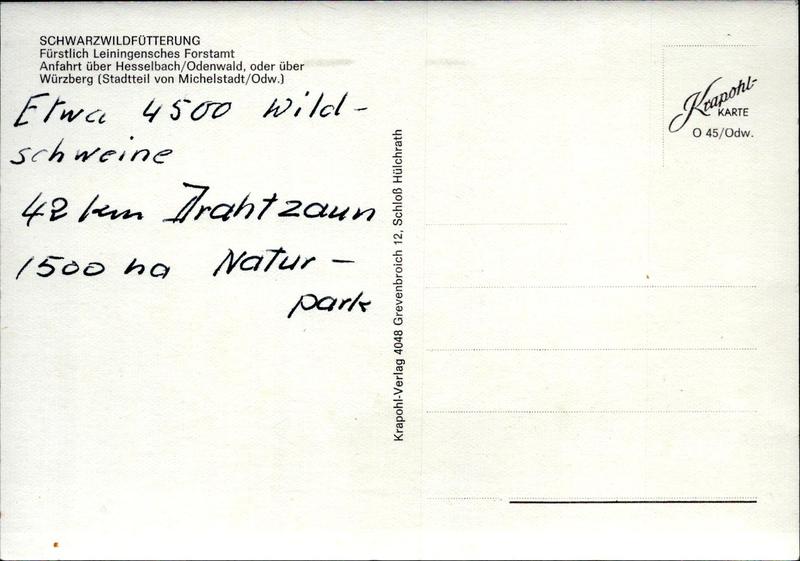 SCHWARZWILDFÜTTERUNG
Fürstlich Leiningensches Forstamt
Anfahrt über Hesselbach/Odenwald, oder über
Würzberg (Stadtteil von Michelstadt/Odw.)
Etwa 4500 Wild-
schweine
42 km Drahtzaun
1500 ha Natur-
park
Krapohl-Verlag 4048 Grevenbroich 12, Schloß Hülchrath
Krapohl-
KARTE
O 45/Odw.